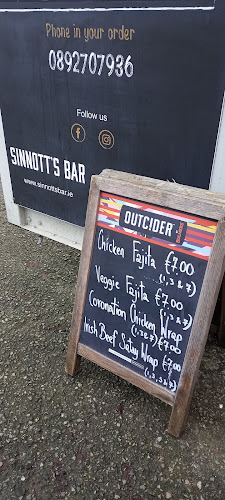 Phone in your order
0892707936
Follow us
SINNOTT'S BAR
www.sinnottsbar.ie
OUTCIDER
Chicken Fajita €7.00
(1,3 & 7)
Veggie Fajita €7.00
(1,3 & 7)
Coronation Chicken Wrap
(1,3 & 7) €7.00
Irish Beef Satay Wrap €7.00
(1,3,5 & 7)